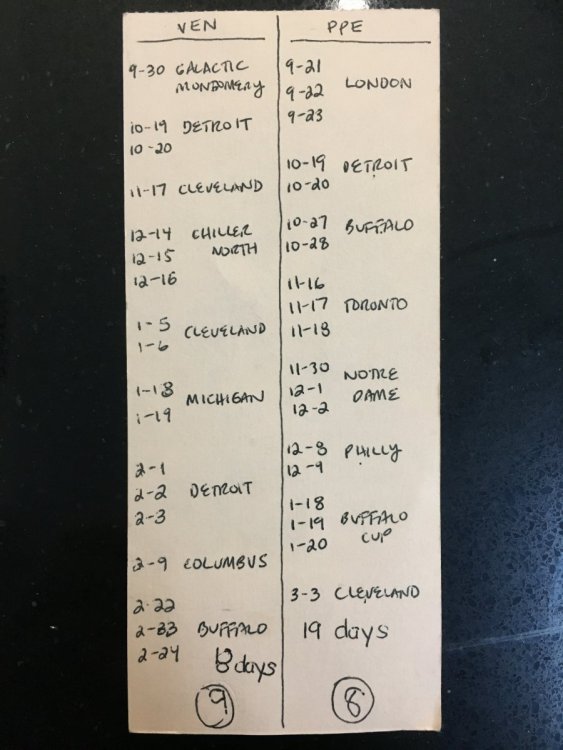 VEN
9-30 GALACTIC
MONTGOMERY
10-19 DETROIT
10-20
11-17 CLEVELAND
12-14 CHILLER
12-15 NORTH
12-16
1-5 CLEVELAND
1-6
1-18 MICHIGAN
1-19
2-1
2-2 DETROIT
2-3
2-9 COLUMBUS
2-22
2-23 BUFFALO
2-24 days
9
PPE
9-21
9-22 LONDON
9-23
10-19 DETROIT
10-20
10-27 BUFFALO
10-28
11-16
11-17 TORONTO
11-18
11-30 NOTRE
12-1 DAME
12-2
12-8 PHILLY
12-9
1-18
1-19 BUFFALO
1-20 CUP
3-3 CLEVELAND
19 days
8